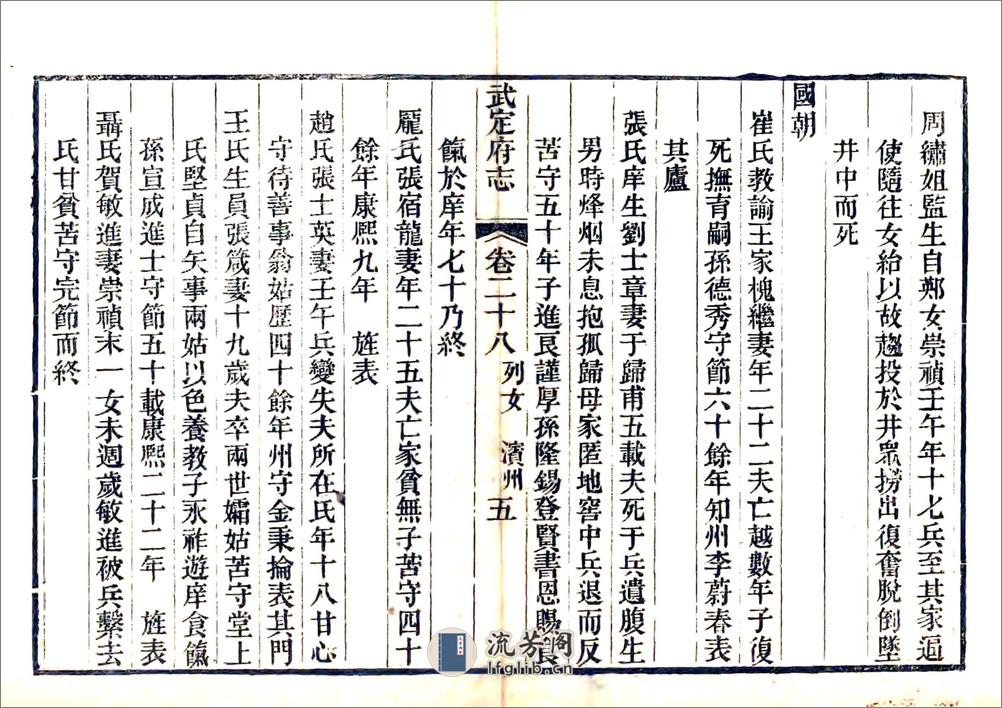 周繡姐監生自鄭女崇禎壬午年十七兵至其家逼
使隨往女紿以故趨投於井眾撈出復奮脫倒墜
井中而死
國朝
崔氏教諭王家槐繼妻年二十二夫亡越數年子復
死撫育嗣孫德秀守節六十餘年知州李蔚春表
其廬
張氏庠生劉士章妻于歸甫五載夫死于兵遺腹生
男時烽烟未息抱孤歸母家匿地窖中兵退而反
苦守五十年子進良謹厚孫隆錫登賢書恩賜
武定府志
卷二十八
列女
濱州
五
餼於庠年七十乃終
龐氏張宿龍妻年二十五夫亡家貧無子苦守四十
餘年康熙九年 旌表
趙氏張士英妻壬午兵變失夫所在氏年十八甘心
守待善事翁姑歷四十餘年州守金秉掄表其門
王氏生員張箴妻十九歲夫卒兩世孀姑苦守堂上
氏堅貞自矢事兩姑以色養教子永祚遊庠食餼
孫宣成進士守節五十載康熙二十二年 旌表
聶氏賀敏進妻崇禎末一女未週歲敏進被兵繫去
氏甘貧苦守完節而終
流芳閣
lfglib.cn